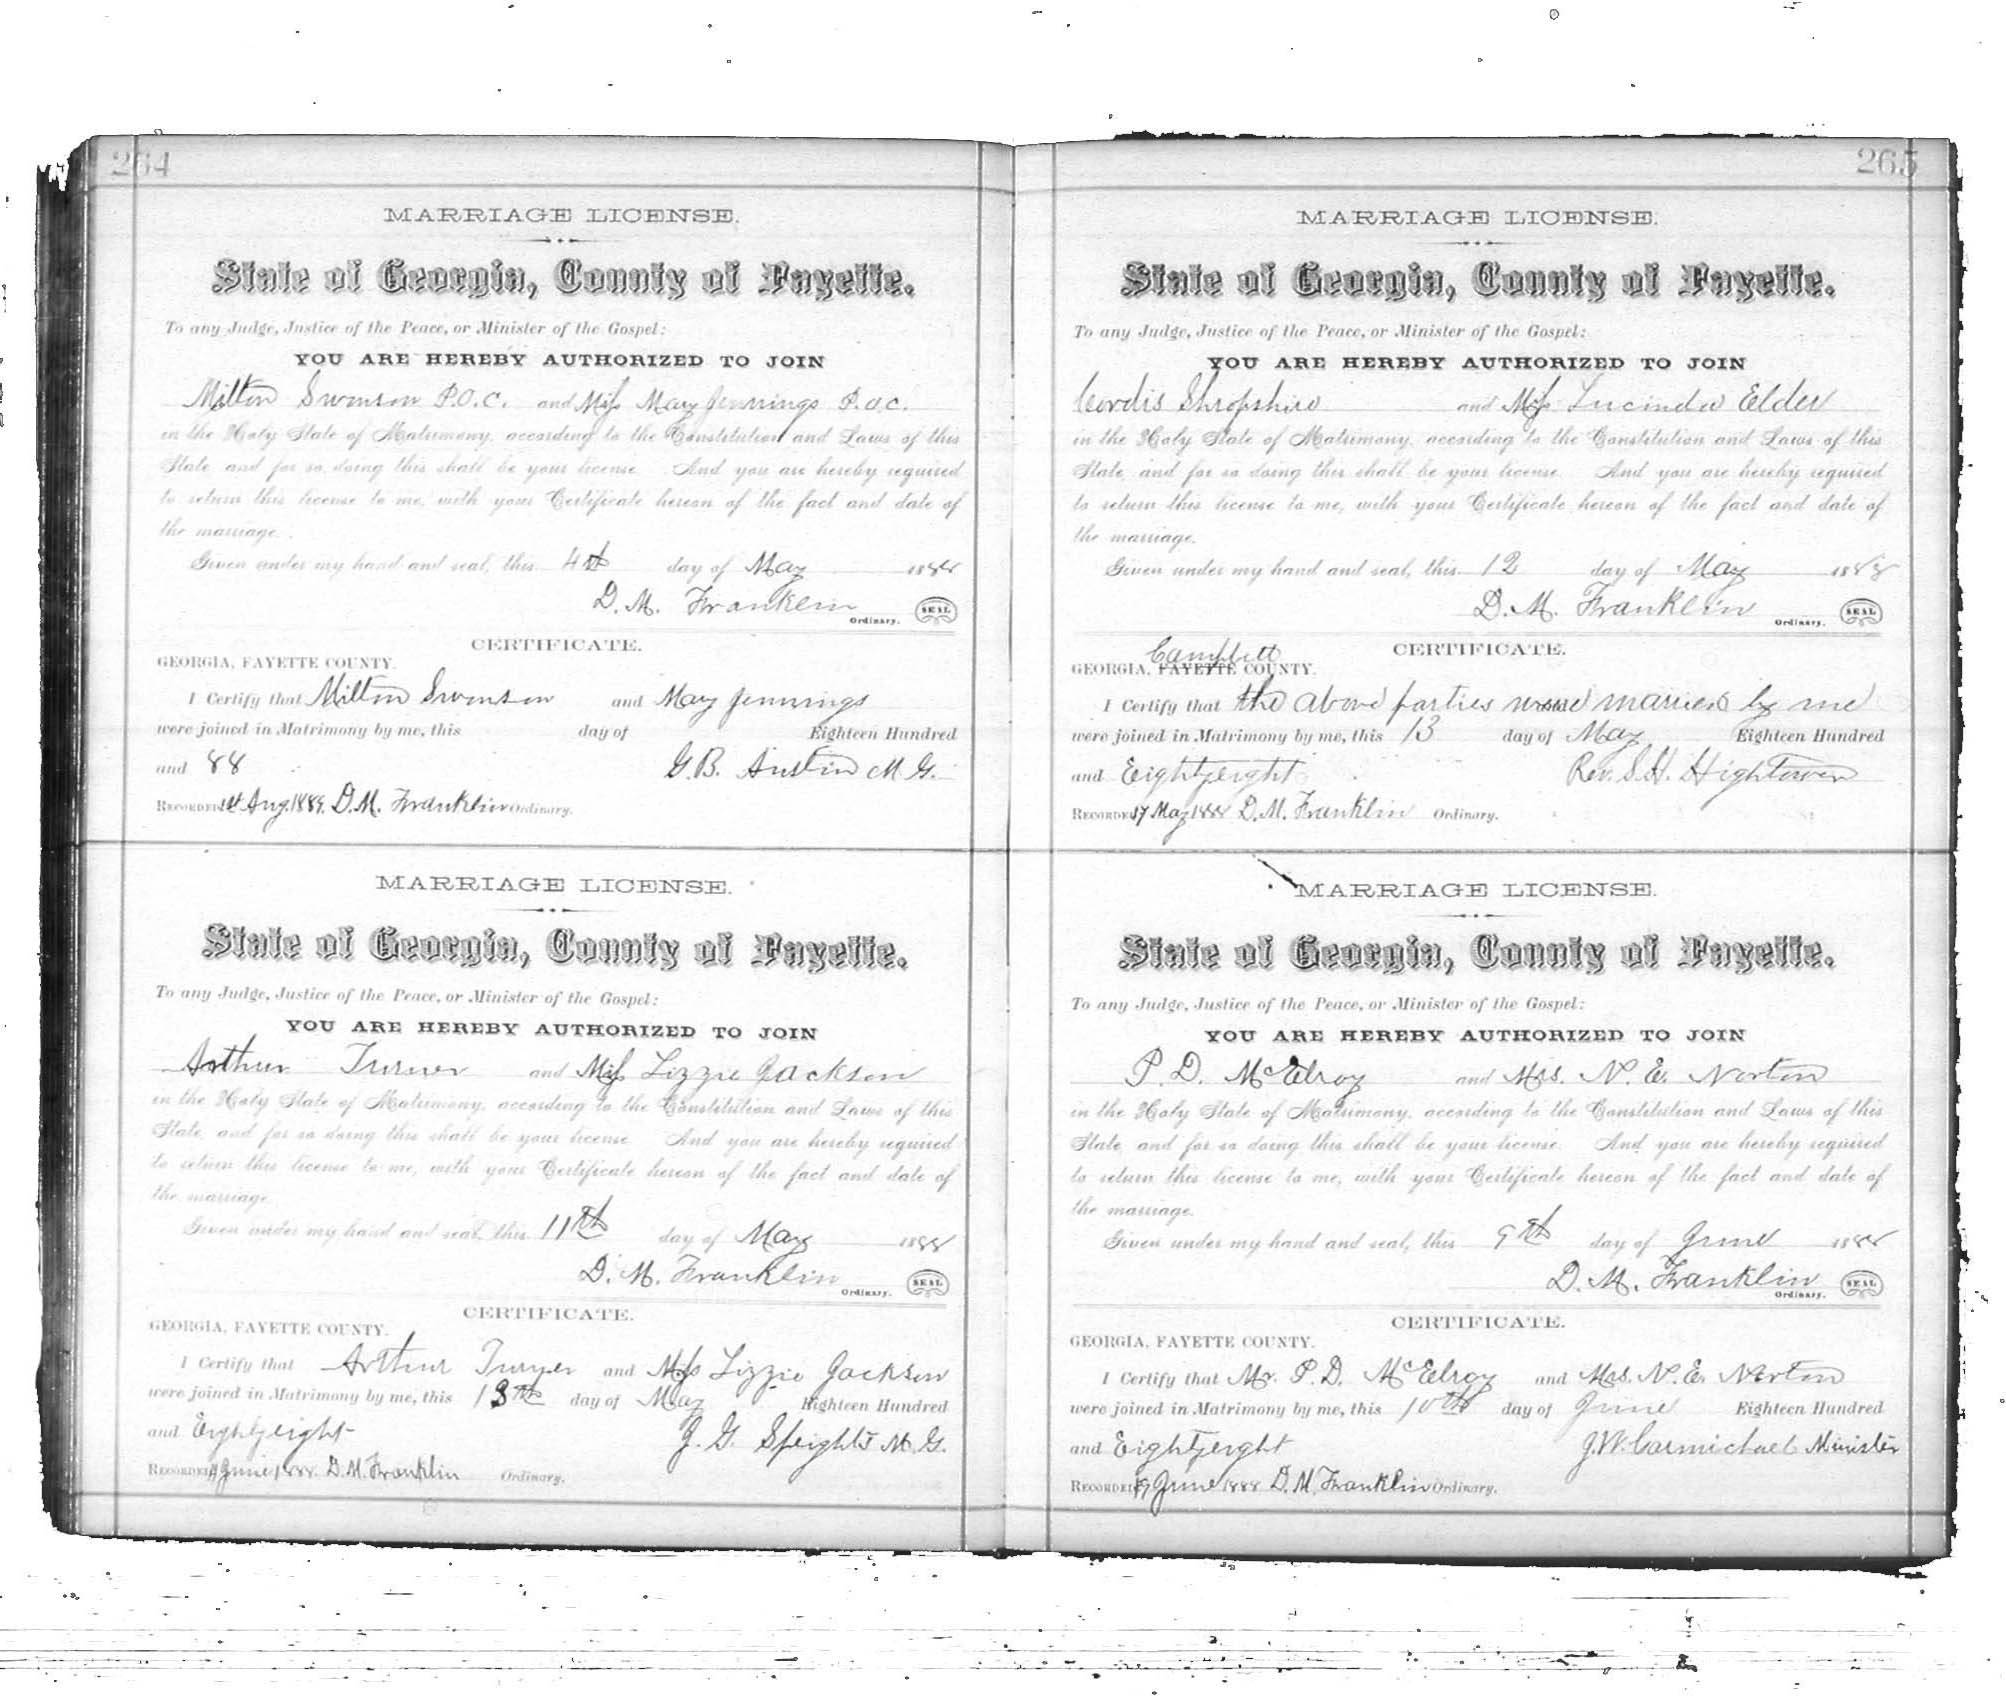 264
MARRIAGE LICENSE.
State of Georgia, County of Fayette.
To any Judge, Justice of the Peace, or Minister of the Gospel:
YOU ARE HEREBY AUTHORIZED TO JOIN
Milton Swonson P.O.C. and Miss Mary Jennings P.O.C.
in the Holy State of Matrimony, according to the Constitution and Laws of this
State, and for so doing this shall be your license. And you are hereby required
to return this license to me, with your Certificate hereon of the fact and date of
the marriage.
Given under my hand and seal, this 4th day of May 1888
D. M. Franklin
Ordinary. SEAL
CERTIFICATE.
GEORGIA, FAYETTE COUNTY.
I Certify that Milton Swonson and Mary Jennings
were joined in Matrimony by me, this day of Eighteen Hundred
and 88 G. B. Austin M. G.
RECORDED 1st Aug. 1889. D. M. Franklin Ordinary.
MARRIAGE LICENSE.
State of Georgia, County of Fayette.
To any Judge, Justice of the Peace, or Minister of the Gospel:
YOU ARE HEREBY AUTHORIZED TO JOIN
Arthur Turner and Miss Lizzie Jackson
in the Holy State of Matrimony, according to the Constitution and Laws of this
State, and for so doing this shall be your license. And you are hereby required
to return this license to me, with your Certificate hereon of the fact and date of
the marriage.
Given under my hand and seal, this 11th day of May 1888
D. M. Franklin
Ordinary. SEAL
CERTIFICATE.
GEORGIA, FAYETTE COUNTY.
I Certify that Arthur Turner and Miss Lizzie Jackson
were joined in Matrimony by me, this 13th day of May Eighteen Hundred
and Eightyeight J. G. Speights M. G.
RECORDED June 1888. D. M. Franklin Ordinary.
265
MARRIAGE LICENSE.
State of Georgia, County of Fayette.
To any Judge, Justice of the Peace, or Minister of the Gospel:
YOU ARE HEREBY AUTHORIZED TO JOIN
Cordis Shropshire and Miss Lucinda Elder
in the Holy State of Matrimony, according to the Constitution and Laws of this
State, and for so doing this shall be your license. And you are hereby required
to return this license to me, with your Certificate hereon of the fact and date of
the marriage.
Given under my hand and seal, this 12 day of May 1888
D. M. Franklin
Ordinary. SEAL
CERTIFICATE.
Campbell
GEORGIA, FAYETTE COUNTY.
I Certify that the above parties were married by me
were joined in Matrimony by me, this 13 day of May Eighteen Hundred
and Eightyeight Rev. S. H. Hightower
RECORDED 17 May 1888 D. M. Franklin Ordinary.
MARRIAGE LICENSE.
State of Georgia, County of Fayette.
To any Judge, Justice of the Peace, or Minister of the Gospel:
YOU ARE HEREBY AUTHORIZED TO JOIN
P. D. McElroy and Mrs. N. E. Norton
in the Holy State of Matrimony, according to the Constitution and Laws of this
State, and for so doing this shall be your license. And you are hereby required
to return this license to me, with your Certificate hereon of the fact and date of
the marriage.
Given under my hand and seal, this 9th day of June 1888
D. M. Franklin
Ordinary. SEAL
CERTIFICATE.
GEORGIA, FAYETTE COUNTY.
I Certify that Mr. P. D. McElroy and Mrs. N. E. Norton
were joined in Matrimony by me, this 10th day of June Eighteen Hundred
and Eightyeight J. W. Carmichael Minister
RECORDED 19 June 1888 D. M. Franklin Ordinary.